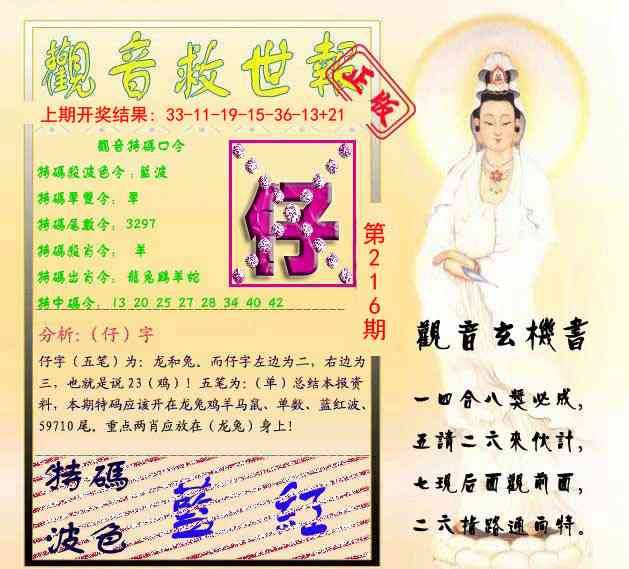 觀音救世報
正版
上期开奖结果：33-11-19-15-36-13+21
觀音特碼口令
特碼段波色令：藍波
特碼單雙令： 單
特碼尾數令：3297
特碼殺肖令： 羊
特碼出肖令：龍兔鷄羊蛇
特中碼令： 13 20 25 27 28 34 40 42
仔
第216期
分析：（仔）字
仔字（五笔）为：龙和兔。而仔字左边为二，右边为
三，也就是说 23（鸡）！五笔为：（单）总结本报资
料，本期特码应该开在龙兔鸡羊马鼠、单数、蓝红波、
59710 尾。重点两肖应放在（龙兔）身上！
特碼
波色
藍 紅
觀音玄機書
一四合八獎必成，
五請二六來伙計，
七现后面觀前面，
二六指路通而特。